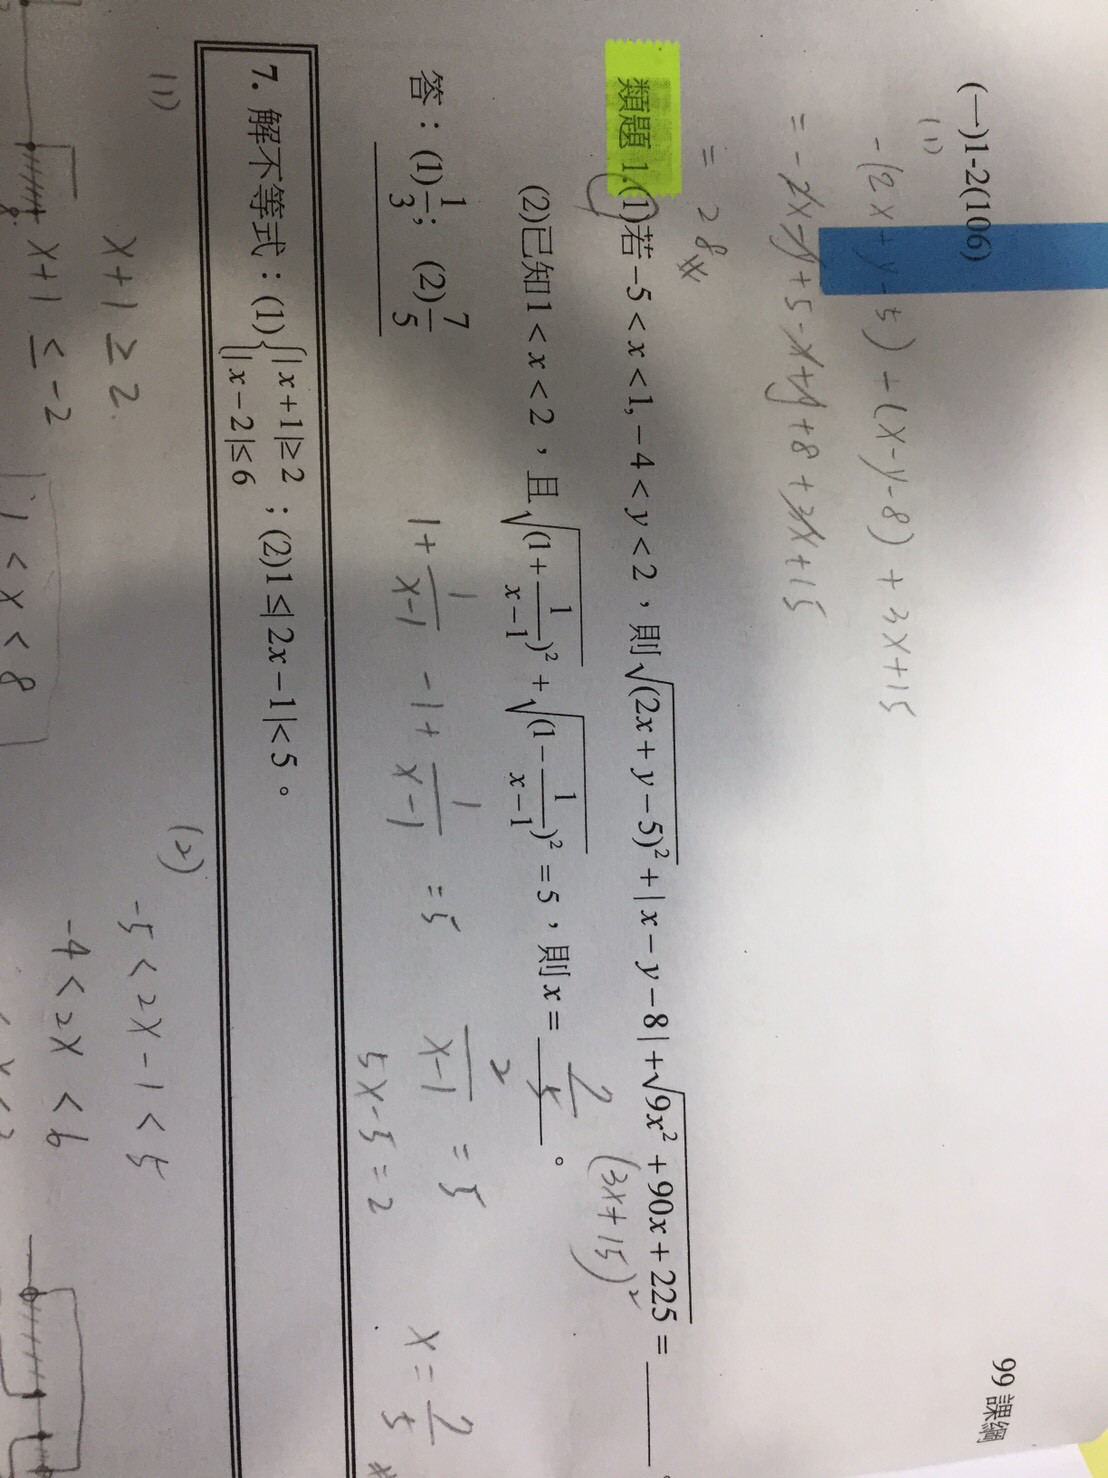 (一)1-2(106)
99 課綱
(1)
-(2x+y-5)+(x-y-8)+3x+15
=-2x-y+5-x+y+8+3x+15
=28
類題 1.(1)若-5<x<1,-4<y<2，則√(2x+y-5)²+|x-y-8|+√9x²+90x+225=____。
(3x+15)²
(2)已知1<x<2，且√(1+1/(x-1))²+√(1-1/(x-1))²=5，則x=____。
7/5
答：(1)1/3；(2)7/5
1+1/(x-1) -1+1/(x-1) =5
2/(x-1) =5
5x-5=2
x=7/5
7. 解不等式：(1){|x+1|≥2 |x-2|≤6；(2)1≤|2x-1|<5。
(1)
x+1≥2
x+1≤-2
1<x<8
(2)
-5<2x-1<5
-4<2x<6